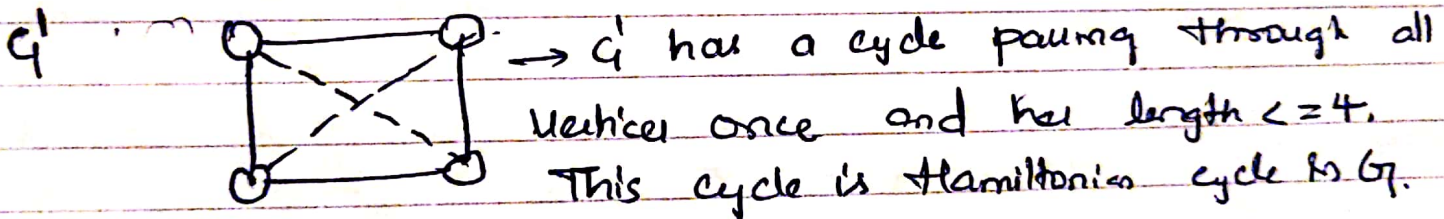 G' → G' has a cycle passing through all
vertices once and has length <= 4.
This cycle is Hamiltonian cycle in G.